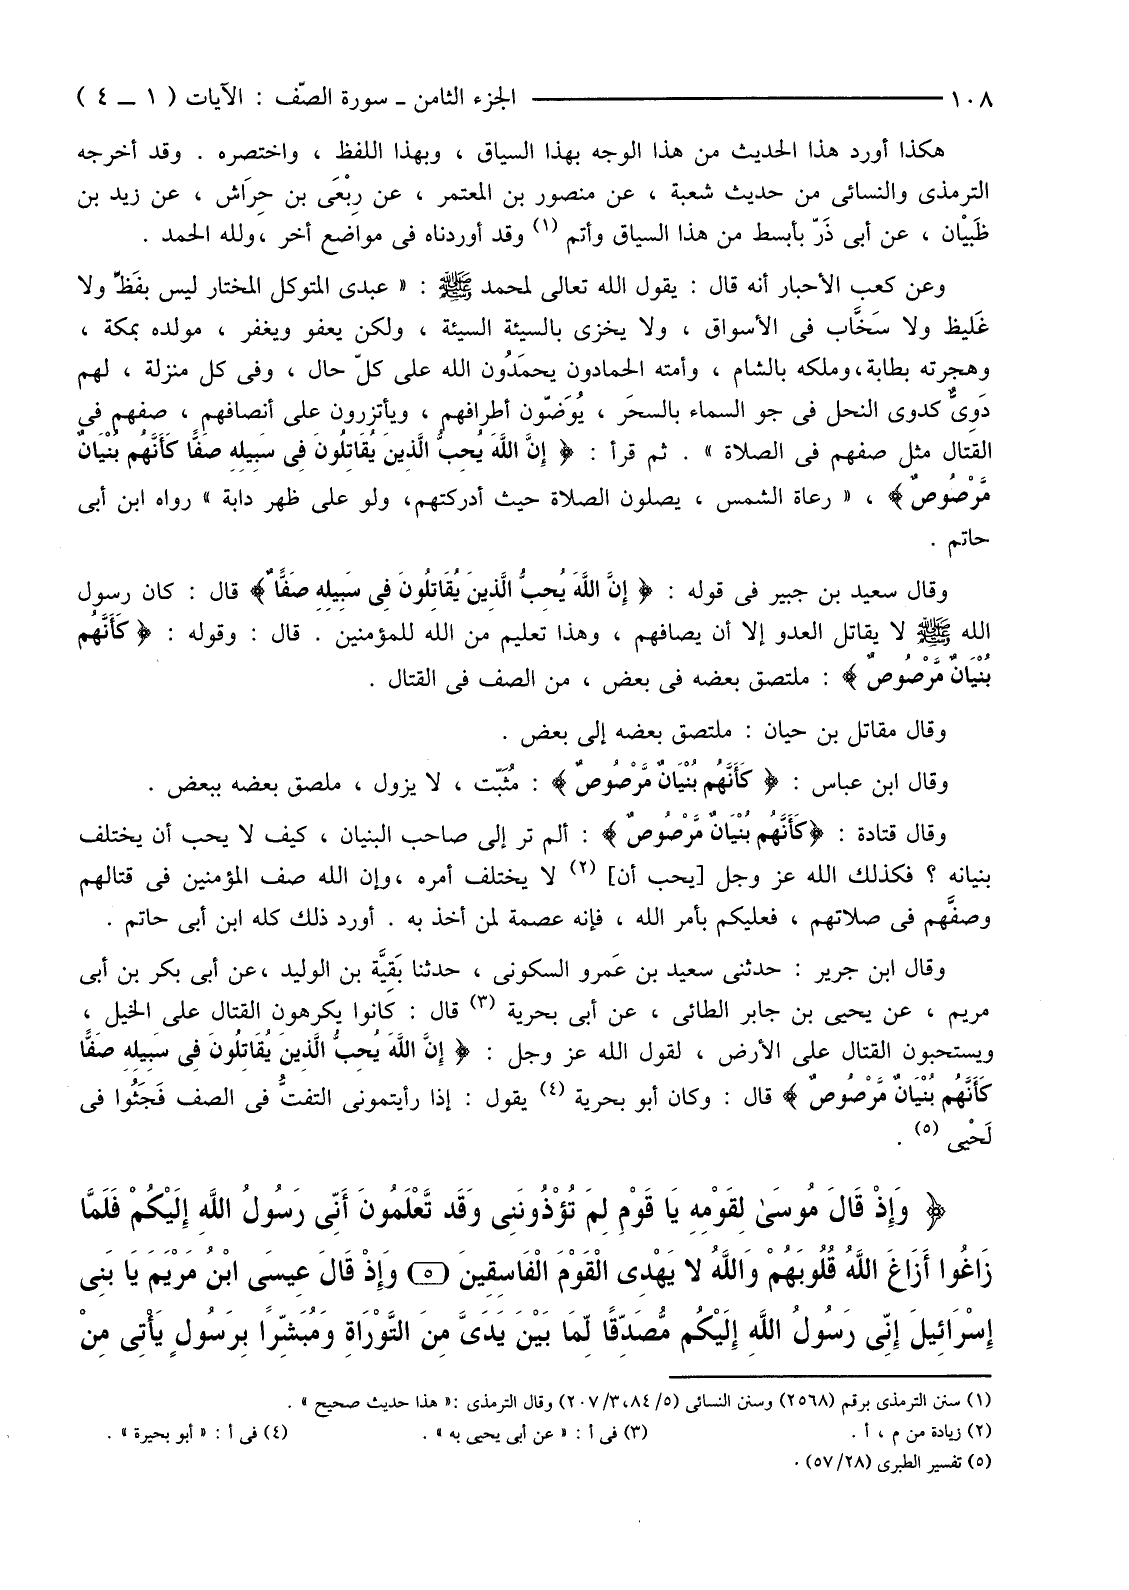 ١٠٨ ــــــــــــــ الجزء الثامن ـ سورة الصّف : الآيات ( ١ ــ ٤ )
هكذا أورد هذا الحديث من هذا الوجه بهذا السياق ، وبهذا اللفظ ، واختصره . وقد أخرجه
الترمذى والنسائى من حديث شعبة ، عن منصور بن المعتمر ، عن رِبْعَى بن حِرَاش ، عن زيد بن
ظَبيْان ، عن أبى ذَرّ بأبسط من هذا السياق وأتم (١) وقد أوردناه فى مواضع أخر ،ولله الحمد .
وعن كعب الأحبار أنه قال : يقول الله تعالى لمحمد ﷺ : « عبدى المتوكل المختار ليس بفَظٍّ ولا
غَليظ ولا سَخَّاب فى الأسواق ، ولا يخزى بالسيئة السيئة ، ولكن يعفو ويغفر ، مولده بمكة ،
وهجرته بطابة،وملكه بالشام ، وأمته الحمادون يحمَدُون الله على كلّ حال ، وفى كل منزلة ، لهم
دَوِىٌّ كدوى النحل فى جو السماء بالسحَر ، يُوَضّون أطرافهم ، ويأتزرون على أنصافهم ، صفهم فى
القتال مثل صفهم فى الصلاة » . ثم قرأ : ﴿ إِنَّ اللَّهَ يُحِبُّ الَّذِينَ يُقَاتِلُونَ فِى سَبِيلِهِ صَفًّا كَأَنَّهُم بُنْيَانٌ
مَّرْصُوصٌ ﴾ ، « رعاة الشمس ، يصلون الصلاة حيث أدركتهم، ولو على ظهر دابة » رواه ابن أبى
حاتم .
وقال سعيد بن جبير فى قوله : ﴿ إِنَّ اللَّهَ يُحِبُّ الَّذِينَ يُقَاتِلُونَ فِى سَبِيلِهِ صَفًّا ﴾ قال : كان رسول
الله ﷺ لا يقاتل العدو إلا أن يصافهم ، وهذا تعليم من الله للمؤمنين . قال : وقوله : ﴿ كَأَنَّهُم
بُنْيَانٌ مَّرْصُوصٌ ﴾ : ملتصق بعضه فى بعض ، من الصف فى القتال .
وقال مقاتل بن حيان : ملتصق بعضه إلى بعض .
وقال ابن عباس : ﴿ كَأَنَّهُم بُنْيَانٌ مَّرْصُوصٌ ﴾ : مُثَبّت ، لا يزول ، ملصق بعضه ببعض .
وقال قتادة : ﴿كَأَنَّهُم بُنْيَانٌ مَّرْصُوصٌ ﴾ : ألم تر إلى صاحب البنيان ، كيف لا يحب أن يختلف
بنيانه ؟ فكذلك الله عز وجل [يحب أن] (٢) لا يختلف أمره ،وإن الله صف المؤمنين فى قتالهم
وصفَّهم فى صلاتهم ، فعليكم بأمر الله ، فإنه عصمة لمن أخذ به . أورد ذلك كله ابن أبى حاتم .
وقال ابن جرير : حدثنى سعيد بن عَمرو السكونى ، حدثنا بَقِيَّة بن الوليد ،عن أبى بكر بن أبى
مريم ، عن يحيى بن جابر الطائى ، عن أبى بحرية (٣) قال : كانوا يكرهون القتال على الخيل ،
ويستحبون القتال على الأرض ، لقول الله عز وجل : ﴿ إِنَّ اللَّهَ يُحِبُّ الَّذِينَ يُقَاتِلُونَ فِى سَبِيلِهِ صَفًّا
كَأَنَّهُم بُنْيَانٌ مَّرْصُوصٌ ﴾ قال : وكان أبو بحرية (٤) يقول : إذا رأيتمونى التفتُّ فى الصف فَجَئُوا فى
لَحْيى (٥) .
﴿ وَإِذْ قَالَ مُوسَىٰ لِقَوْمِهِ يَا قَوْمِ لِمَ تُؤْذُونَنِى وَقَد تَّعْلَمُونَ أَنِّى رَسُولُ اللَّهِ إِلَيْكُمْ فَلَمَّا
زَاغُوا أَزَاغَ اللَّهُ قُلُوبَهُمْ وَاللَّهُ لا يَهْدِى الْقَوْمَ الْفَاسِقِينَ (٥) وَإِذْ قَالَ عِيسَى ابْنُ مَرْيَمَ يَا بَنِى
إِسْرَائِيلَ إِنِّى رَسُولُ اللَّهِ إِلَيْكُم مُّصَدِّقًا لِّمَا بَيْنَ يَدَىَّ مِنَ التَّوْرَاةِ وَمُبَشِّرًا بِرَسُولٍ يَأْتِى مِنْ
(١) سنن الترمذى برقم (٢٥٦٨) وسنن النسائى (٣،٨٤/٥/ ٢٠٧) وقال الترمذى :« هذا حديث صحيح » .
(٢) زيادة من م ، أ . (٣) فى أ : « عن أبى يحيى به » . (٤) فى أ : « أبو بحيرة » .
(٥) تفسير الطبرى (٢٨ /٥٧) .